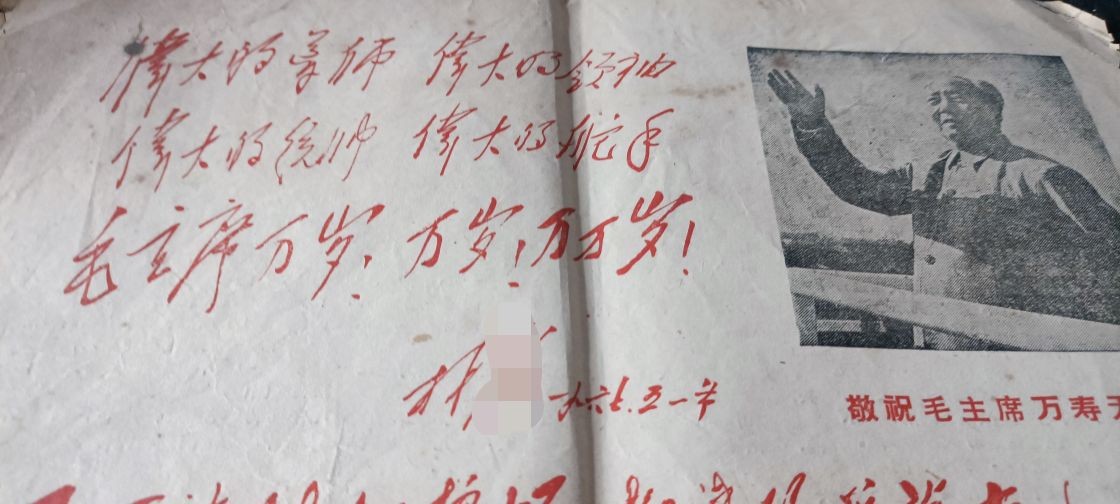 偉大的导师 偉大的领袖
偉大的统帅 偉大的舵手
毛主席万岁！万岁！万万岁！
林
一九六七.五一节
敬祝毛主席万寿